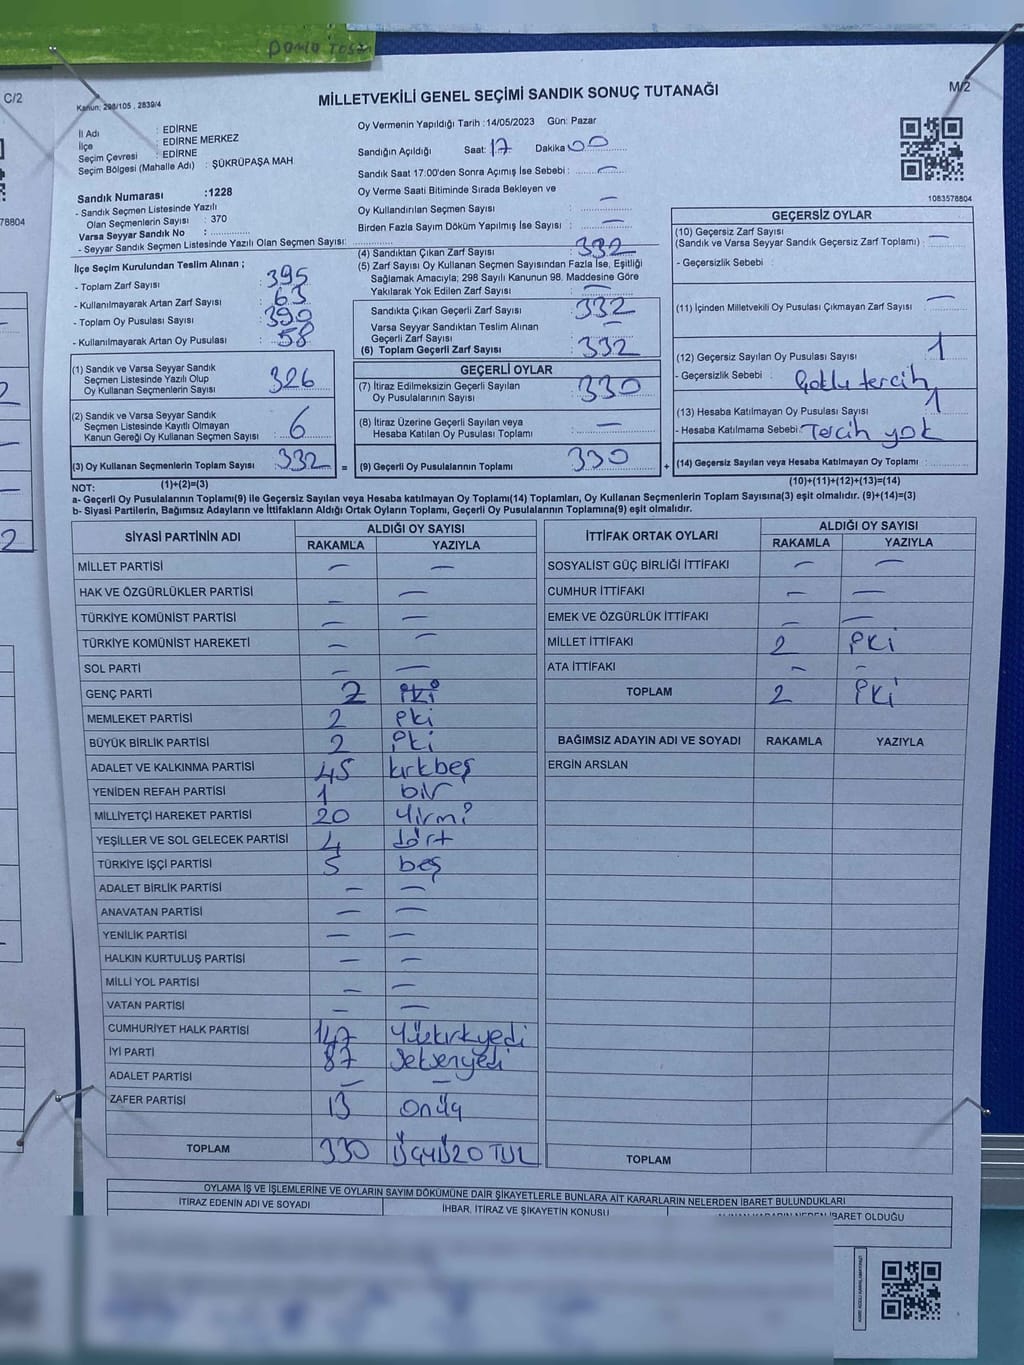 DOMLU TOSZ
C/2
Kanun; 298/105 , 2839/4
MİLLETVEKİLİ GENEL SEÇİMİ SANDIK SONUÇ TUTANAĞI
M/2
İl Adı : EDİRNE
İlçe : EDİRNE MERKEZ
Seçim Çevresi : EDİRNE
Seçim Bölgesi (Mahalle Adı) : ŞÜKRÜPAŞA MAH
Sandık Numarası :1228
- Sandık Seçmen Listesinde Yazılı
Olan Seçmenlerin Sayısı : 370
Varsa Seyyar Sandık No :
- Seyyar Sandık Seçmen Listesinde Yazılı Olan Seçmen Sayısı:
Oy Vermenin Yapıldığı Tarih :14/05/2023 Gün: Pazar
Sandığın Açıldığı Saat: 17 Dakika 00
Sandık Saat 17:00'den Sonra Açımış İse Sebebi : —
Oy Verme Saati Bitiminde Sırada Bekleyen ve
Oy Kullandırılan Seçmen Sayısı : —
Birden Fazla Sayım Döküm Yapılmış İse Sebebi : —
1083578804
78804
İlçe Seçim Kurulundan Teslim Alınan ;
- Toplam Zarf Sayısı : 395
- Kullanılmayarak Artan Zarf Sayısı : 63
- Toplam Oy Pusulası Sayısı : 390
- Kullanılmayarak Artan Oy Pusulası : 58
(1) Sandık ve Varsa Seyyar Sandık
Seçmen Listesinde Yazılı Olup
Oy Kullanan Seçmenlerin Sayısı : 326
(2) Sandık ve Varsa Seyyar Sandık
Seçmen Listesinde Kayıtlı Olmayan
Kanun Gereği Oy Kullanan Seçmen Sayısı : 6
(3) Oy Kullanan Seçmenlerin Toplam Sayısı : 332 =
(1)+(2)=(3)
(4) Sandıktan Çıkan Zarf Sayısı : 332
(5) Zarf Sayısı Oy Kullanan Seçmen Sayısından Fazla İse, Eşitliği
Sağlamak Amacıyla; 298 Sayılı Kanunun 98. Maddesine Göre
Yakılarak Yok Edilen Zarf Sayısı : —
Sandıkta Çıkan Geçerli Zarf Sayısı : 332
Varsa Seyyar Sandıktan Teslim Alınan
Geçerli Zarf Sayısı : —
(6) Toplam Geçerli Zarf Sayısı : 332
GEÇERLİ OYLAR
(7) İtiraz Edilmeksizin Geçerli Sayılan
Oy Pusulalarının Sayısı : 330
(8) İtiraz Üzerine Geçerli Sayılan veya
Hesaba Katılan Oy Pusulası Toplamı : —
(9) Geçerli Oy Pusulalarının Toplamı : 330 +
GEÇERSİZ OYLAR
(10) Geçersiz Zarf Sayısı
(Sandık ve Varsa Seyyar Sandık Geçersiz Zarf Toplamı) : —
- Geçersizlik Sebebi :
(11) İçinden Milletvekili Oy Pusulası Çıkmayan Zarf Sayısı : —
(12) Geçersiz Sayılan Oy Pusulası Sayısı : 1
- Geçersizlik Sebebi : Çoklu tercih
(13) Hesaba Katılmayan Oy Pusulası Sayısı : 1
- Hesaba Katılmama Sebebi: Tercih yok
(14) Geçersiz Sayılan veya Hesaba Katılmayan Oy Toplamı :
(10)+(11)+(12)+(13)=(14)
NOT:
a- Geçerli Oy Pusulalarının Toplamı(9) ile Geçersiz Sayılan veya Hesaba katılmayan Oy Toplamı(14) Toplamları, Oy Kullanan Seçmenlerin Toplam Sayısına(3) eşit olmalıdır. (9)+(14)=(3)
b- Siyasi Partilerin, Bağımsız Adayların ve İttifakların Aldığı Ortak Oyların Toplamı, Geçerli Oy Pusulalarının Toplamına(9) eşit olmalıdır.
SİYASİ PARTİNİN ADI ALDIĞI OY SAYISI
RAKAMLA YAZIYLA
MİLLET PARTİSİ — —
HAK VE ÖZGÜRLÜKLER PARTİSİ — —
TÜRKİYE KOMÜNİST PARTİSİ — —
TÜRKİYE KOMÜNİST HAREKETİ — —
SOL PARTİ — —
GENÇ PARTİ 2 iki
MEMLEKET PARTİSİ 2 iki
BÜYÜK BİRLİK PARTİSİ 2 iki
ADALET VE KALKINMA PARTİSİ 45 kırkbeş
YENİDEN REFAH PARTİSİ 1 bir
MİLLİYETÇİ HAREKET PARTİSİ 20 Yirmi
YEŞİLLER VE SOL GELECEK PARTİSİ 4 dört
TÜRKİYE İŞÇİ PARTİSİ 5 beş
ADALET BİRLİK PARTİSİ — —
ANAVATAN PARTİSİ — —
YENİLİK PARTİSİ — —
HALKIN KURTULUŞ PARTİSİ — —
MİLLİ YOL PARTİSİ — —
VATAN PARTİSİ — —
CUMHURİYET HALK PARTİSİ 147 Yüzkırkyedi
İYİ PARTİ 87 Seksenyedi
ADALET PARTİSİ — —
ZAFER PARTİSİ 13 onüç
TOPLAM 330 ÜÇYÜZOTUZ
İTTİFAK ORTAK OYLARI ALDIĞI OY SAYISI
RAKAMLA YAZIYLA
SOSYALİST GÜÇ BİRLİĞİ İTTİFAKI — —
CUMHUR İTTİFAKI — —
EMEK VE ÖZGÜRLÜK İTTİFAKI — —
MİLLET İTTİFAKI 2 iki
ATA İTTİFAKI — —
TOPLAM 2 iki
BAĞIMSIZ ADAYIN ADI VE SOYADI RAKAMLA YAZIYLA
ERGİN ARSLAN
TOPLAM
OYLAMA İŞ VE İŞLEMLERİNE VE OYLARIN SAYIM DÖKÜMÜNE DAİR ŞİKAYETLERLE BUNLARA AİT KARARLARIN NELERDEN İBARET BULUNDUKLARI
İTİRAZ EDENİN ADI VE SOYADI İHBAR, İTİRAZ VE ŞİKAYETİN KONUSU ALINAN KARARIN NEDEN İBARET OLDUĞU